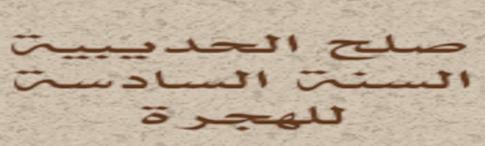 صلح الحديبية
السنة السادسة
للهجرة